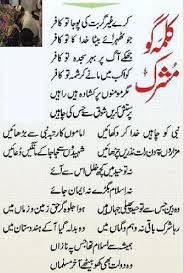 کلمہ گو
مشرک
کرے غیر گر بت کی پوجا تو کافر
جو ٹھہرائے بیٹا خدا کا تو کافر
جھکے آگ پر بہر سجدہ تو کافر
کواکب میں مانے کرشمہ تو کافر
مگر مومنوں پر کشادہ ہیں راہیں
پرستش کریں شوق سے جس کی چاہیں
نبی کو چاہیں خدا کر دکھائیں
اماموں کا رتبہ نبی سے بڑھائیں
مزاروں پہ دن رات نذریں چڑھائیں
شہیدوں سے جا جا کے مانگیں دعائیں
نہ توحید میں کچھ خلل اس سے آئے
نہ اسلام بگڑے نہ ایمان جائے
وہ دین جس سے توحید پھیلی جہاں میں
ہوا جلوہ گر حق زمین و زماں میں
رہا شرک باقی نہ وہم و گماں میں
وہ بدلا گیا آ کے ہندوستاں میں
ہمیشہ سے اسلام تھا جس پہ نازاں
وہ دولت بھی کھو بیٹھے آخر مسلماں